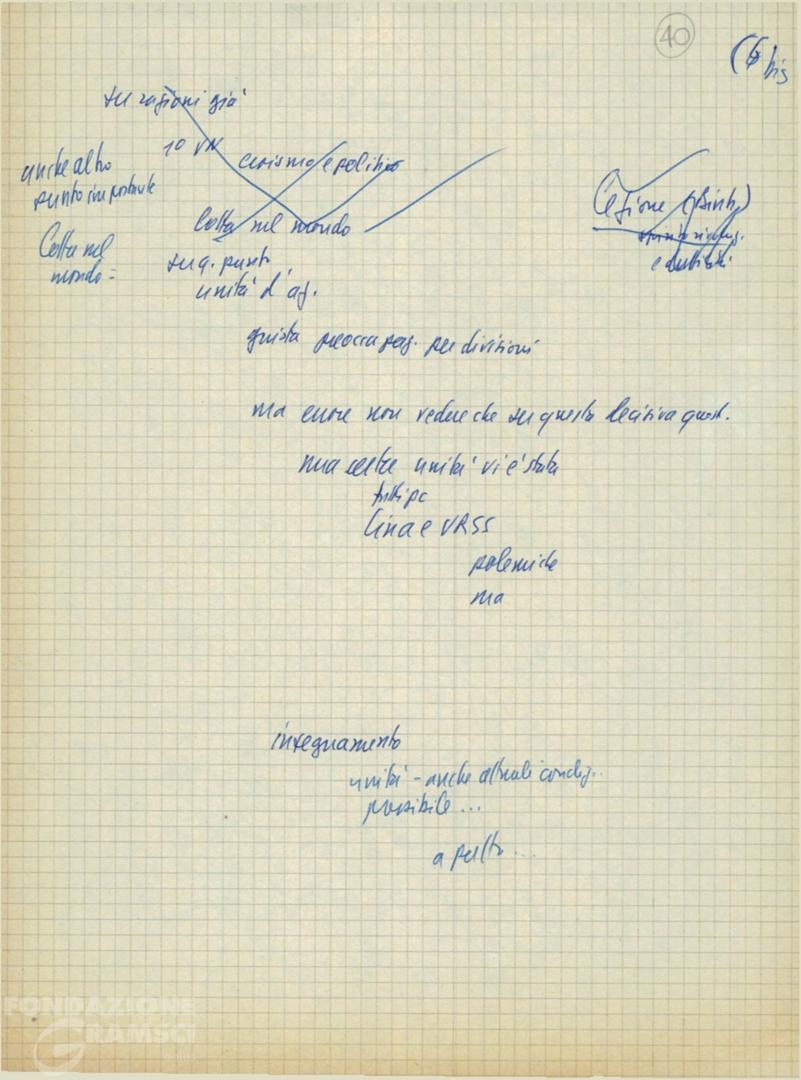 40
(6 bis
su ragioni già
1° VN
eroismo e politico
anche altro
punto importante
Lotta nel mondo
Lotta nel
mondo =
su q. punto
unità d'az.
giusta preoccupaz. per divisioni
ma errore non vedere che su questa decisiva quest.
una certa unità vi è stata
tutti pc
Cina e URSS
polemiche
ma
insegnamento
unità - anche attuali condiz..
possibile...
a patto...
FONDAZIONE
GRAMSCI